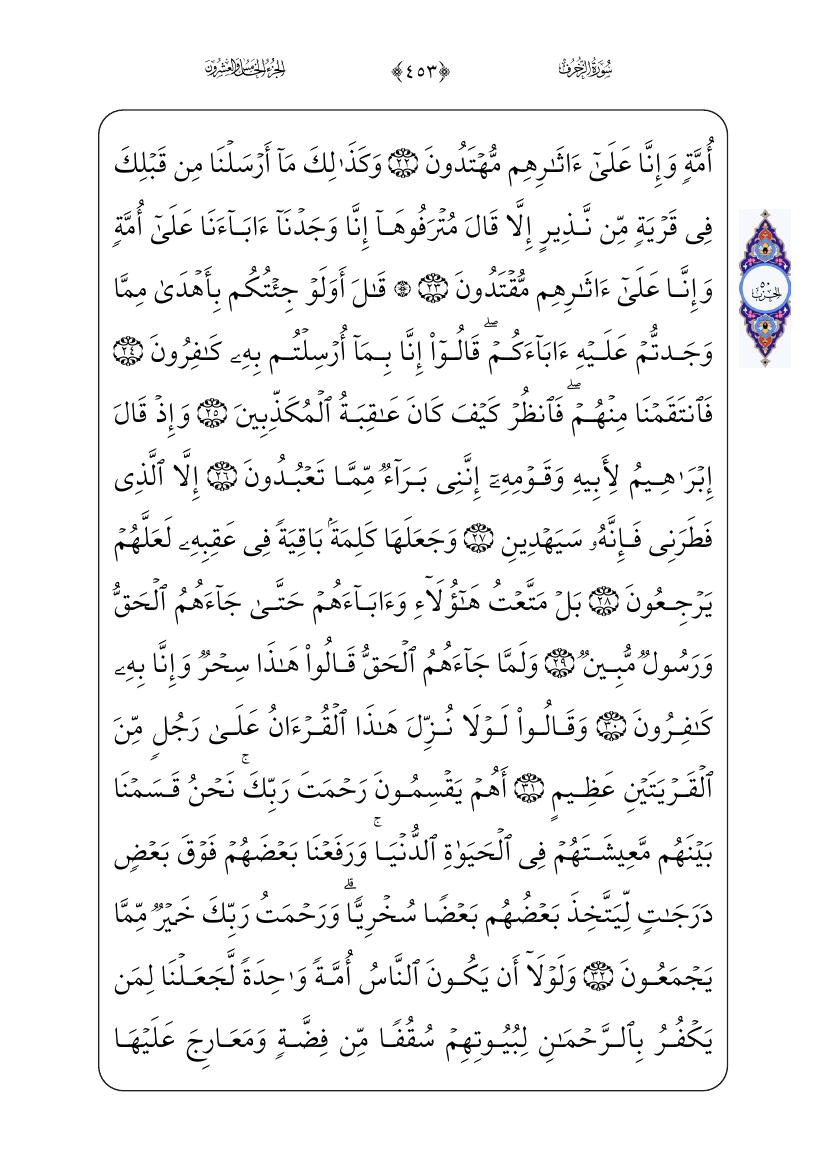 سُورَةُ الزُّخْرُفِ
﴿٤٥٣﴾
الجُزْءُ الخَامِسُ وَالعِشْرُونَ
أُمَّةٖ وَإِنَّا عَلَىٰٓ ءَاثَٰرِهِم مُّهۡتَدُونَ ٢٢ وَكَذَٰلِكَ مَآ أَرۡسَلۡنَا مِن قَبۡلِكَ
فِي قَرۡيَةٖ مِّن نَّذِيرٍ إِلَّا قَالَ مُتۡرَفُوهَآ إِنَّا وَجَدۡنَآ ءَابَآءَنَا عَلَىٰٓ أُمَّةٖ
وَإِنَّا عَلَىٰٓ ءَاثَٰرِهِم مُّقۡتَدُونَ ٢٣ ۞ قَٰلَ أَوَلَوۡ جِئۡتُكُم بِأَهۡدَىٰ مِمَّا
وَجَدتُّمۡ عَلَيۡهِ ءَابَآءَكُمۡۖ قَالُوٓاْ إِنَّا بِمَآ أُرۡسِلۡتُم بِهِۦ كَٰفِرُونَ ٢٤
فَٱنتَقَمۡنَا مِنۡهُمۡۖ فَٱنظُرۡ كَيۡفَ كَانَ عَٰقِبَةُ ٱلۡمُكَذِّبِينَ ٢٥ وَإِذۡ قَالَ
إِبۡرَٰهِيمُ لِأَبِيهِ وَقَوۡمِهِۦٓ إِنَّنِي بَرَآءٞ مِّمَّا تَعۡبُدُونَ ٢٦ إِلَّا ٱلَّذِي
فَطَرَنِي فَإِنَّهُۥ سَيَهۡدِينِ ٢٧ وَجَعَلَهَا كَلِمَةَۢ بَاقِيَةٗ فِي عَقِبِهِۦ لَعَلَّهُمۡ
يَرۡجِعُونَ ٢٨ بَلۡ مَتَّعۡتُ هَٰٓؤُلَآءِ وَءَابَآءَهُمۡ حَتَّىٰ جَآءَهُمُ ٱلۡحَقُّ
وَرَسُولٞ مُّبِينٞ ٢٩ وَلَمَّا جَآءَهُمُ ٱلۡحَقُّ قَالُواْ هَٰذَا سِحۡرٞ وَإِنَّا بِهِۦ
كَٰفِرُونَ ٣٠ وَقَالُواْ لَوۡلَا نُزِّلَ هَٰذَا ٱلۡقُرۡءَانُ عَلَىٰ رَجُلٖ مِّنَ
ٱلۡقَرۡيَتَيۡنِ عَظِيمٍ ٣١ أَهُمۡ يَقۡسِمُونَ رَحۡمَتَ رَبِّكَۚ نَحۡنُ قَسَمۡنَا
بَيۡنَهُم مَّعِيشَتَهُمۡ فِي ٱلۡحَيَوٰةِ ٱلدُّنۡيَاۚ وَرَفَعۡنَا بَعۡضَهُمۡ فَوۡقَ بَعۡضٖ
دَرَجَٰتٖ لِّيَتَّخِذَ بَعۡضُهُم بَعۡضٗا سُخۡرِيّٗاۗ وَرَحۡمَتُ رَبِّكَ خَيۡرٞ مِّمَّا
يَجۡمَعُونَ ٣٢ وَلَوۡلَآ أَن يَكُونَ ٱلنَّاسُ أُمَّةٗ وَٰحِدَةٗ لَّجَعَلۡنَا لِمَن
يَكۡفُرُ بِٱلرَّحۡمَٰنِ لِبُيُوتِهِمۡ سُقُفٗا مِّن فِضَّةٖ وَمَعَارِجَ عَلَيۡهَا
الحِزْب ٥٠